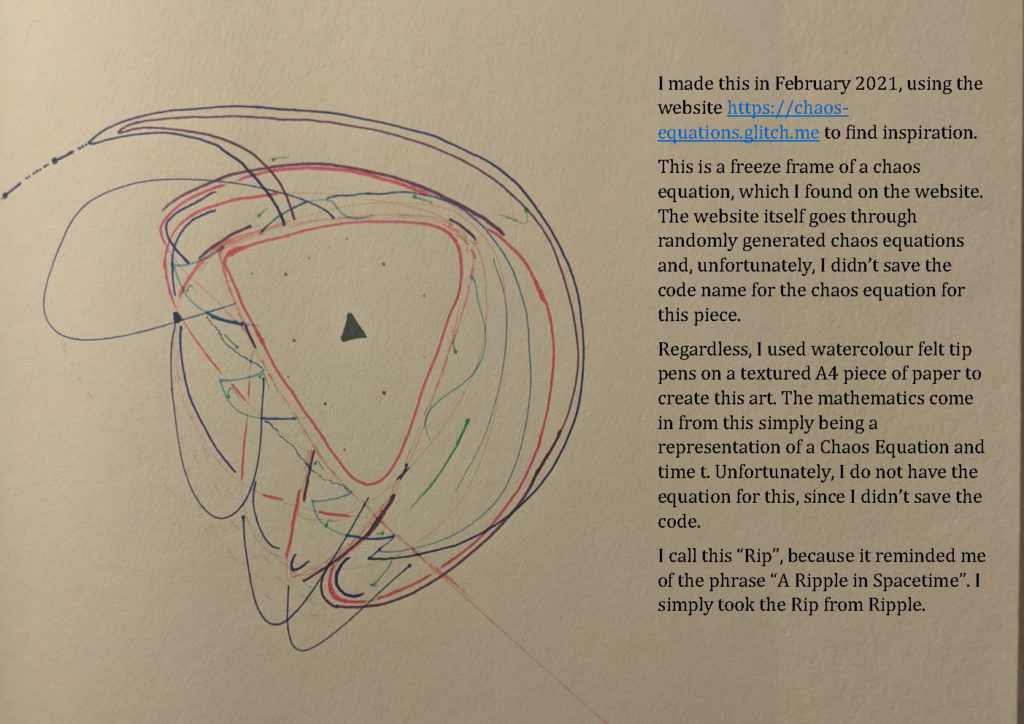 I made this in February 2021, using the
website https://chaos-
equations.glitch.me to find inspiration.
This is a freeze frame of a chaos
equation, which I found on the website.
The website itself goes through
randomly generated chaos equations
and, unfortunately, I didn’t save the
code name for the chaos equation for
this piece.
Regardless, I used watercolour felt tip
pens on a textured A4 piece of paper to
create this art. The mathematics come
in from this simply being a
representation of a Chaos Equation and
time t. Unfortunately, I do not have the
equation for this, since I didn’t save the
code.
I call this “Rip”, because it reminded me
of the phrase “A Ripple in Spacetime”. I
simply took the Rip from Ripple.